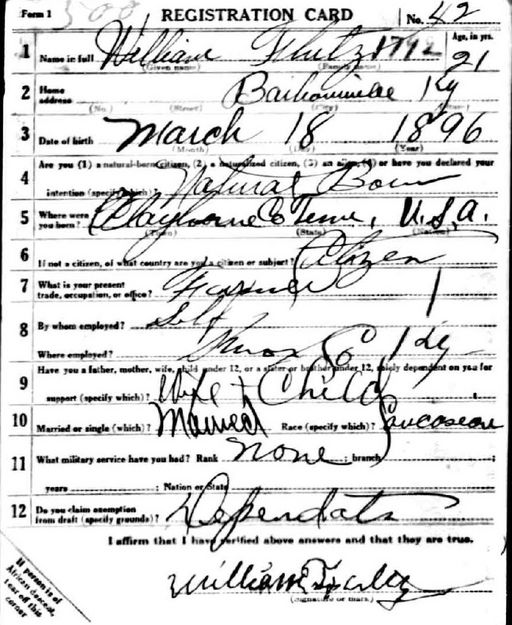 Form 1
REGISTRATION CARD
No. 42
1 Name in full William 1792 Age, in yrs. 21
(Given name) (Family name)
2 Home address Ky
(No.) (Street) (City) (State)
3 Date of birth March 18 1896
(Month) (Day) (Year)
Are you (1) a natural-born citizen, (2) a naturalized citizen, (3) an alien, (4) or have you declared your
4 intention (specify which)? Natural Born
5 Where were you born? Clayborne Co Tenn, U.S.A.
(Town) (State) (Nation)
6 If not a citizen, of what country are you a citizen or subject? Citizen
7 What is your present trade, occupation, or office? Farmer
8 By whom employed? Self
Where employed? Knox Co Ky
Have you a father, mother, wife, child under 12, or a sister or brother under 12, solely dependent on you for
9 support (specify which)? Wife + Child
10 Married or single (which)? Married Race (specify which)? Caucasean
11 What military service have you had? Rank none ; branch ;
years ; Nation or State
12 Do you claim exemption from draft (specify grounds)? Dependats
I affirm that I have verified above answers and that they are true.
William
(Signature or mark)
If person is of
African descent,
tear off this
corner